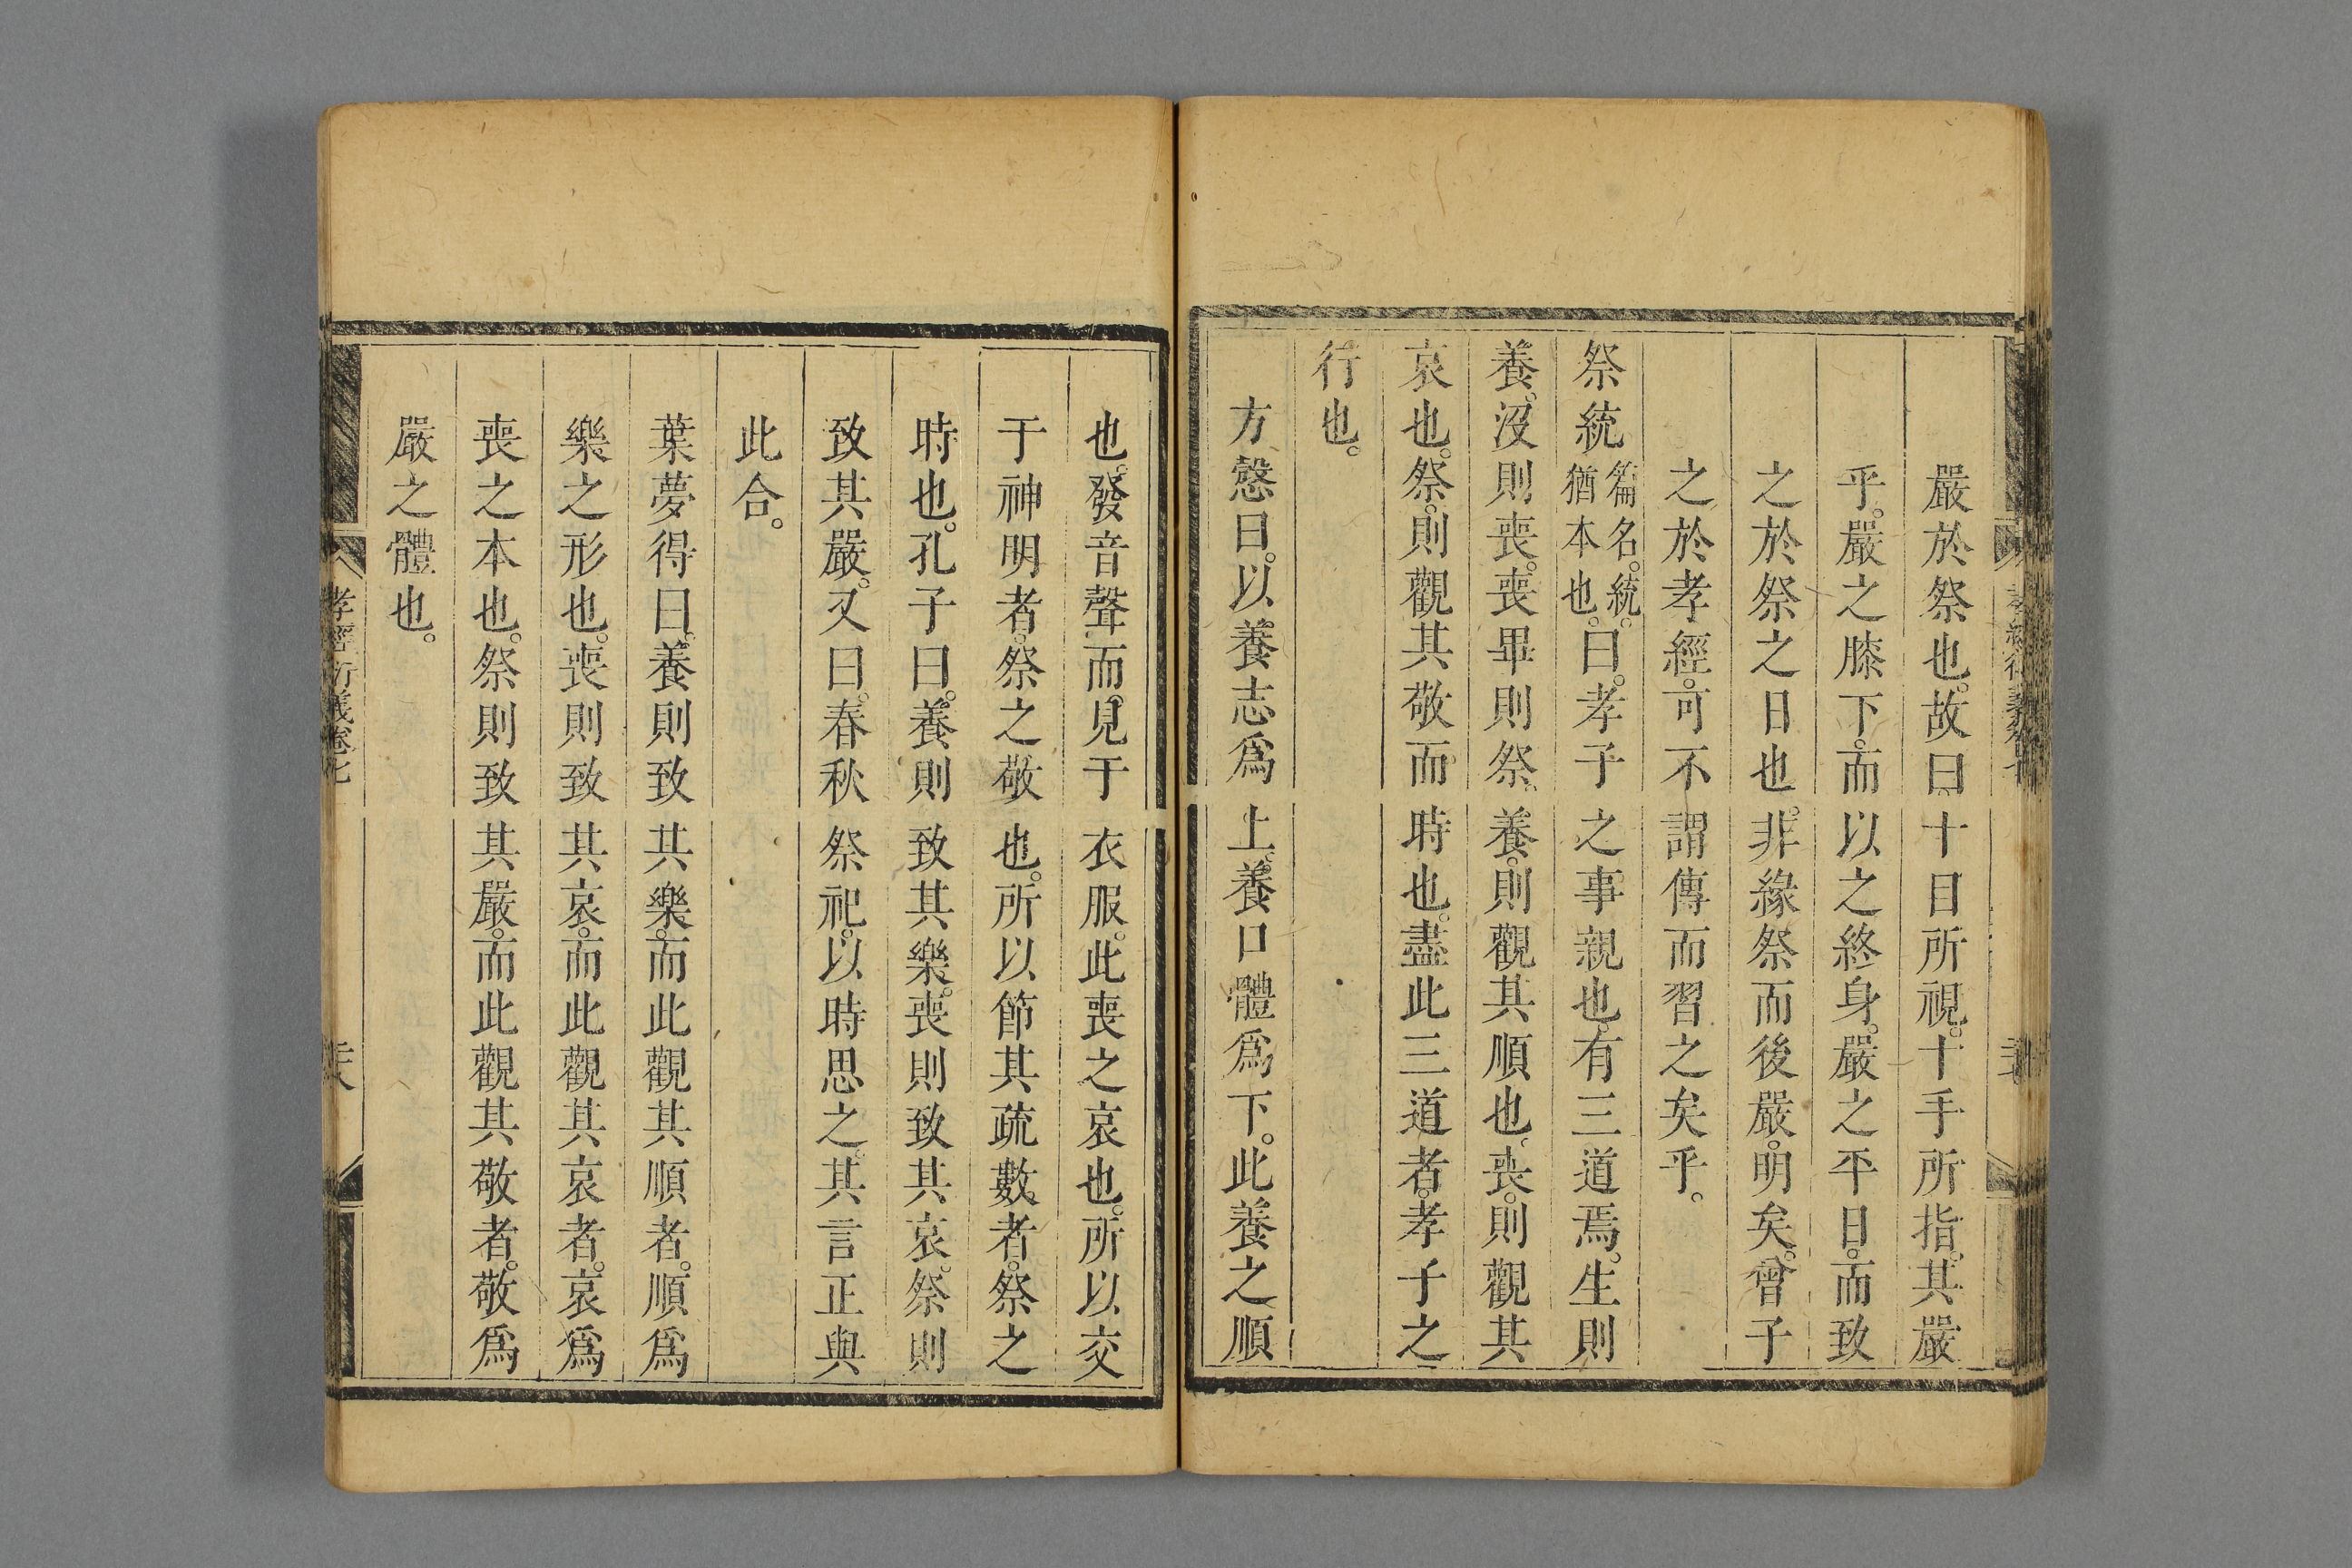 嚴於祭也。故曰十目所視。十手所指。其嚴
乎。嚴之膝下。而以之終身。嚴之平日。而致
之於祭之日也。非緣祭而後嚴。明矣。曾子
之於孝經。可不謂傳而習之矣乎。
祭統篇名。統。猶本也。曰。孝子之事親也。有三道焉。生則
養、沒則喪。喪畢則祭、養。則觀其順也、喪。則觀其
哀也。祭。則觀其敬而時也。盡此三道者。孝子之
行也。
方慤曰。以養志爲上。養口體爲下。此養之順
也。發音聲而。見于衣服。此喪之哀也。所以交
于神明者。祭之敬也。所以節其疏數者。祭之
時也。孔子曰。養則致其樂。喪則致其哀。祭則
致其嚴。又曰。春秋祭祀。以時思之。其言正與
此合。
葉夢得曰。養則致其樂。而此觀其順者。順爲
樂之形也。喪則致其哀。而此觀其哀者。哀爲
喪之本也。祭則致其嚴。而此觀其敬者。敬爲
嚴之體也。
孝經衍義卷七